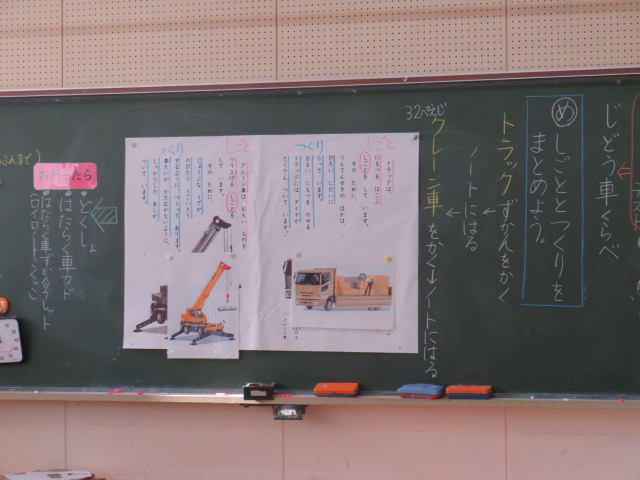 じどう車くらべ
め しごととつくりを
まとめよう。
トラックずかんをかく
↓
ノートにはる
↓
32ぺえじ
クレーン車をかく→ノートにはる
しごと
トラックは、
にもつを はこぶ
しごとを して います。
その ために、
うんてんせきの ほかは、
ひろい にだいに
なって います。
つくり
おもい にもつを のせる
トラックには、タイヤが
たくさん ついて います。
しごと
クレーン車は、おもい ものを
つり上げる しごとを
して います。
その ために、
じょうぶな うでが、
のびたり うごいたり
するように、つくって あります。
つくり
車たいが かたむかないように、
しっかりした あしが、
ついて います。
おわったら
・どくしょ
・はたらく車カード